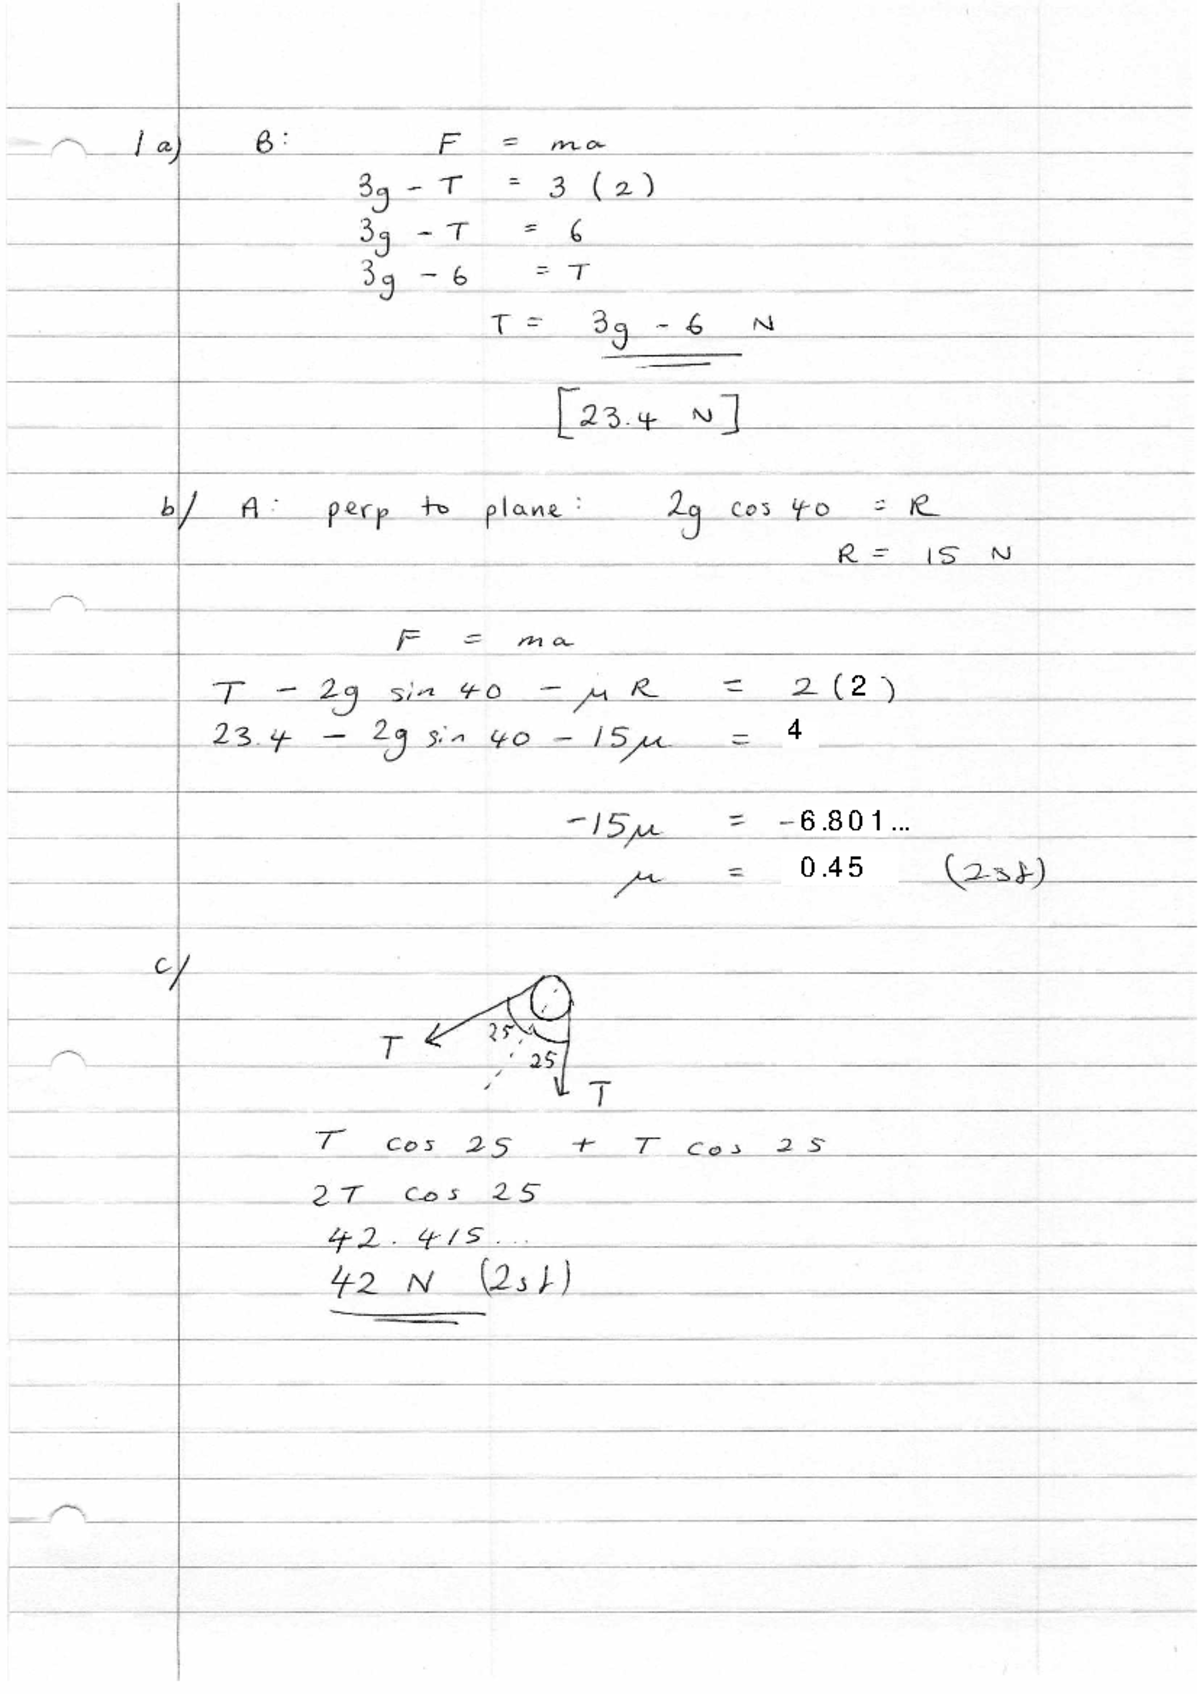 1a) B: F = ma
3g - T = 3 (2)
3g - T = 6
3g - 6 = T
T = 3g - 6 N
[23.4 N]
b/ A: perp to plane: 2g cos 40 = R
R = 15 N
F = ma
T - 2g sin 40 - μR = 2 (2)
23.4 - 2g sin 40 - 15μ = 4
-15μ = -6.801...
μ = 0.45 (2sf)
c/
T 25
25
T
T cos 25 + T cos 25
2T cos 25
42.415...
42 N (2sf)